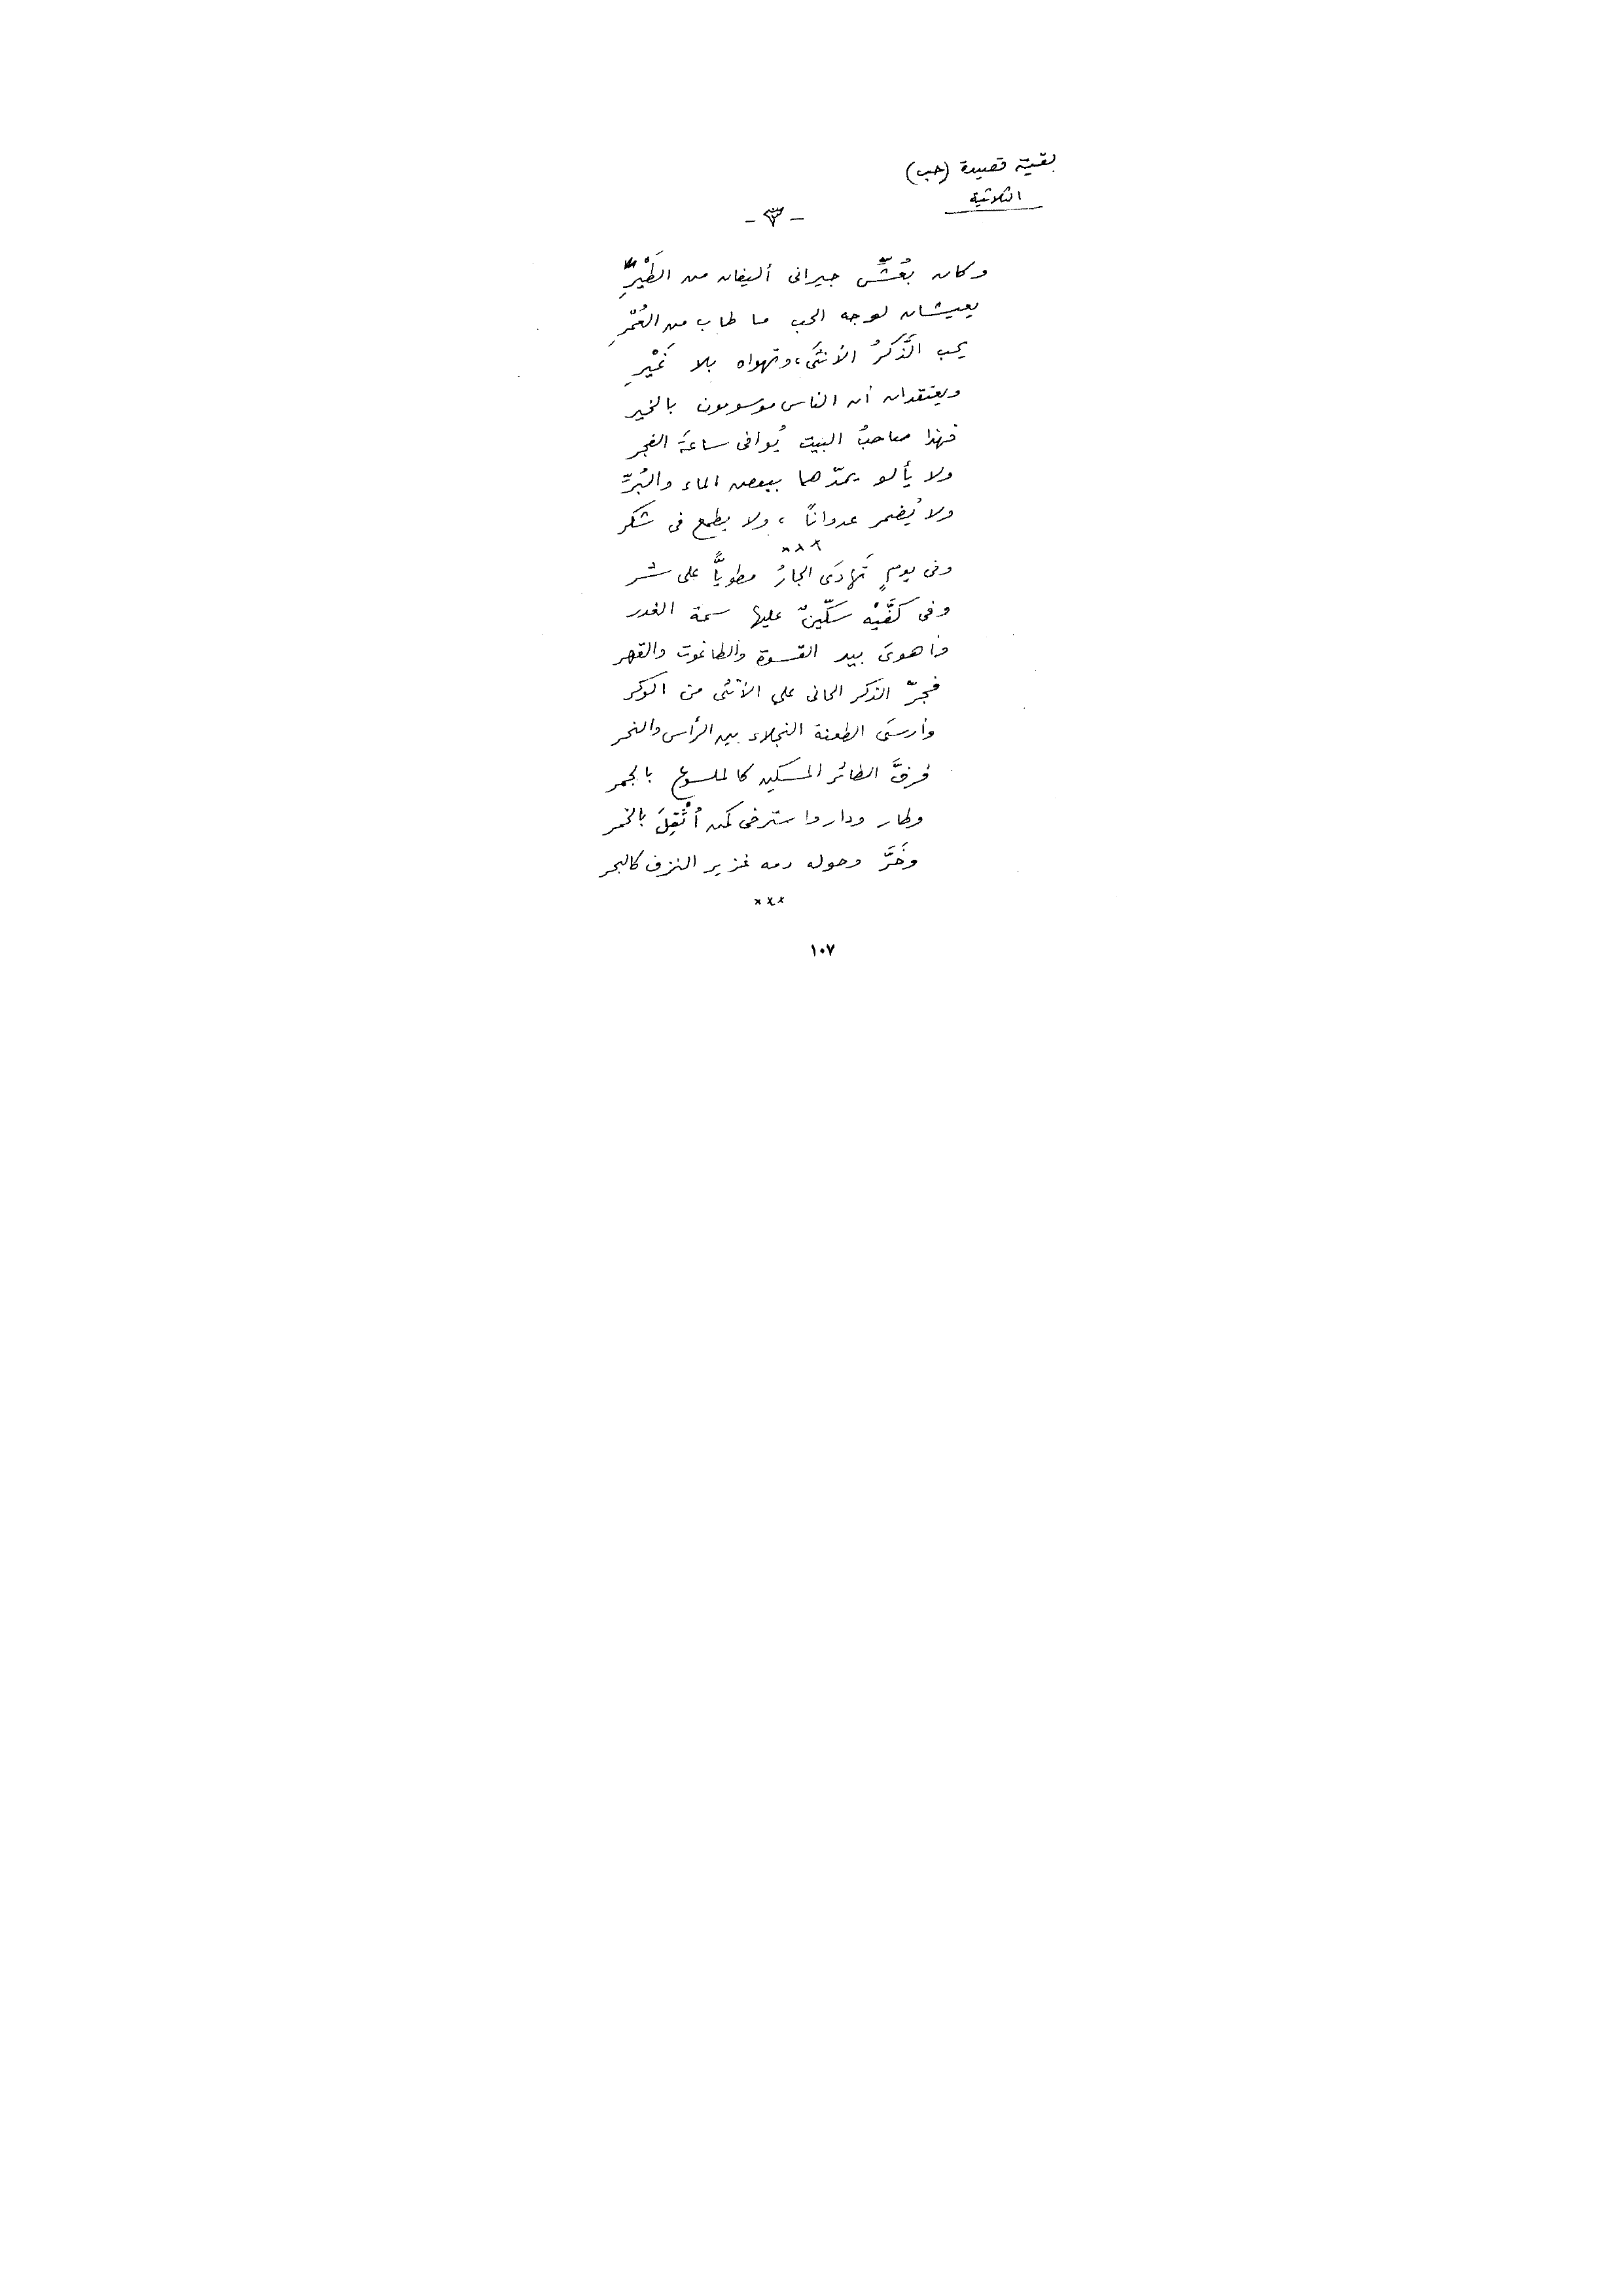 بقية قصيدة (حب)
الثلاثية
- ٣ -
وكان بعُشِّ جيرانى أليفان من الطَيْرِ
يعيشان لوجه الحب ما طاب من العُمْرِ
يحب الذَّكَرُ الأنثَى، وتهواه بلا غَيْرِ
ويعتقدان أن الناس موسومون بالخير
فهذا صاحبُ البيت يُوافى ساعةَ الفجر
ولا يألو يمدّهما ببعض الماء والبُرِّ
ولا يُضمر عدواناً، ولا يطمع فى شكر
×××
وفى يومٍ تَهادَى الجارُ مطويًّا على شر
وفى كفَّيْه سكّينٌ عليها سمة الغدر
وأهوىَ بيد القسوة والطاغوت والقهر
فجرّ الذكر الحانى على الأنثى من الوكر
وأرسَى الطعنة النجلاء بين الرأس والنحر
فرفَّ الطائر المسكين كالملسوع بالجمر
وطار ودار واسترخى كمن أُثْقِلَ بالخمر
وخَرَّ وحوله دمه غزير النزف كالبحر
×××
١٠٧